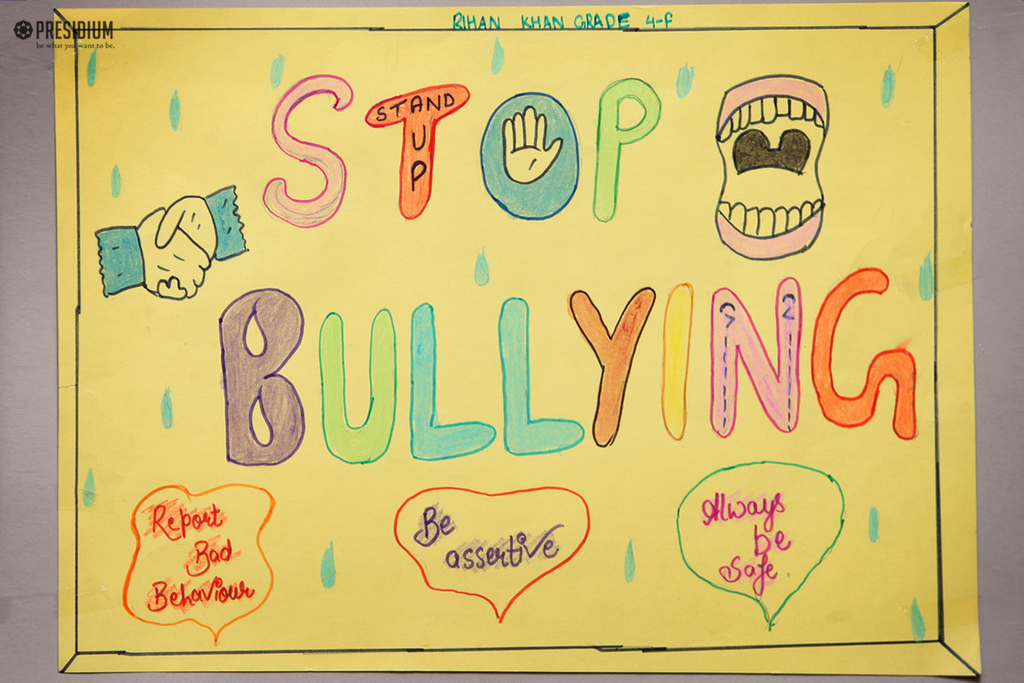 PRESIDIUM
be what you want to be.
RIHAN KHAN GRADE 4-F
STOP
STAND
UP
BULLYING
Report
Bad
Behaviour
Be
assertive
Always
be
Safe.